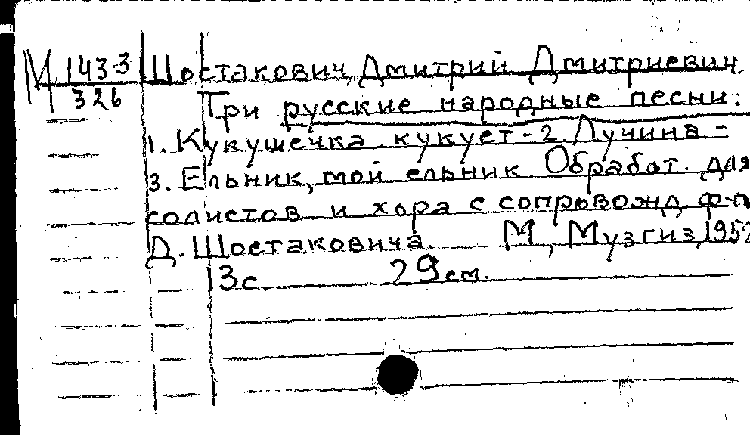 М 143-3 Шостакович, Дмитрий Дмитриевич
326 Три русские народные песни:
1. Кукушечка кукует - 2 Лучина -
3. Ельник, мой ельник Обработ. для
солистов и хора с сопровожд ф-п
Д. Шостаковича. М, Музгиз, 1952
3с 29 см.